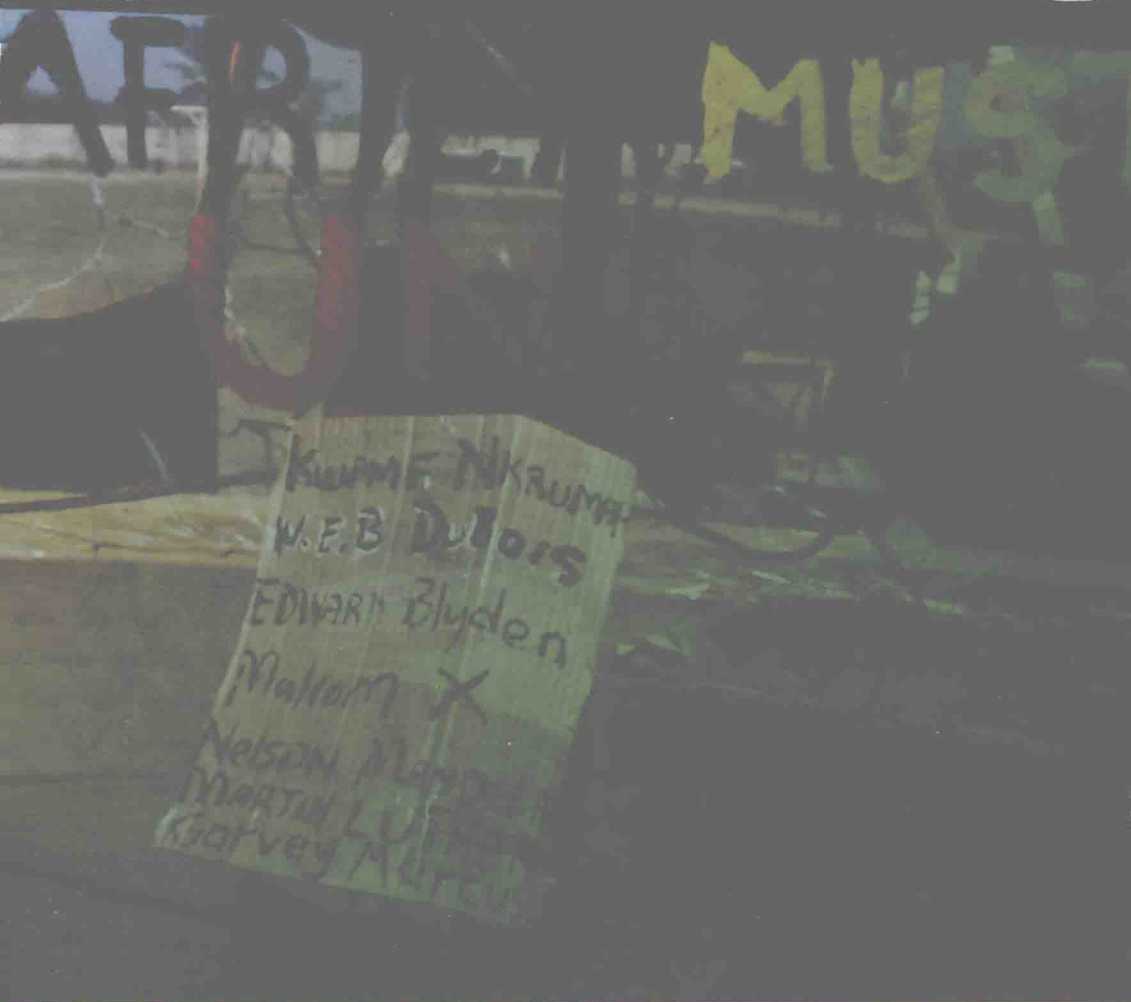 AFRI MUST
UN
KWAME NKRUMA
W.E.B DuBois
EDWARD Blyden
Malrom X
Nelson Mandela
MARTIN LUT
Garvey Marcus